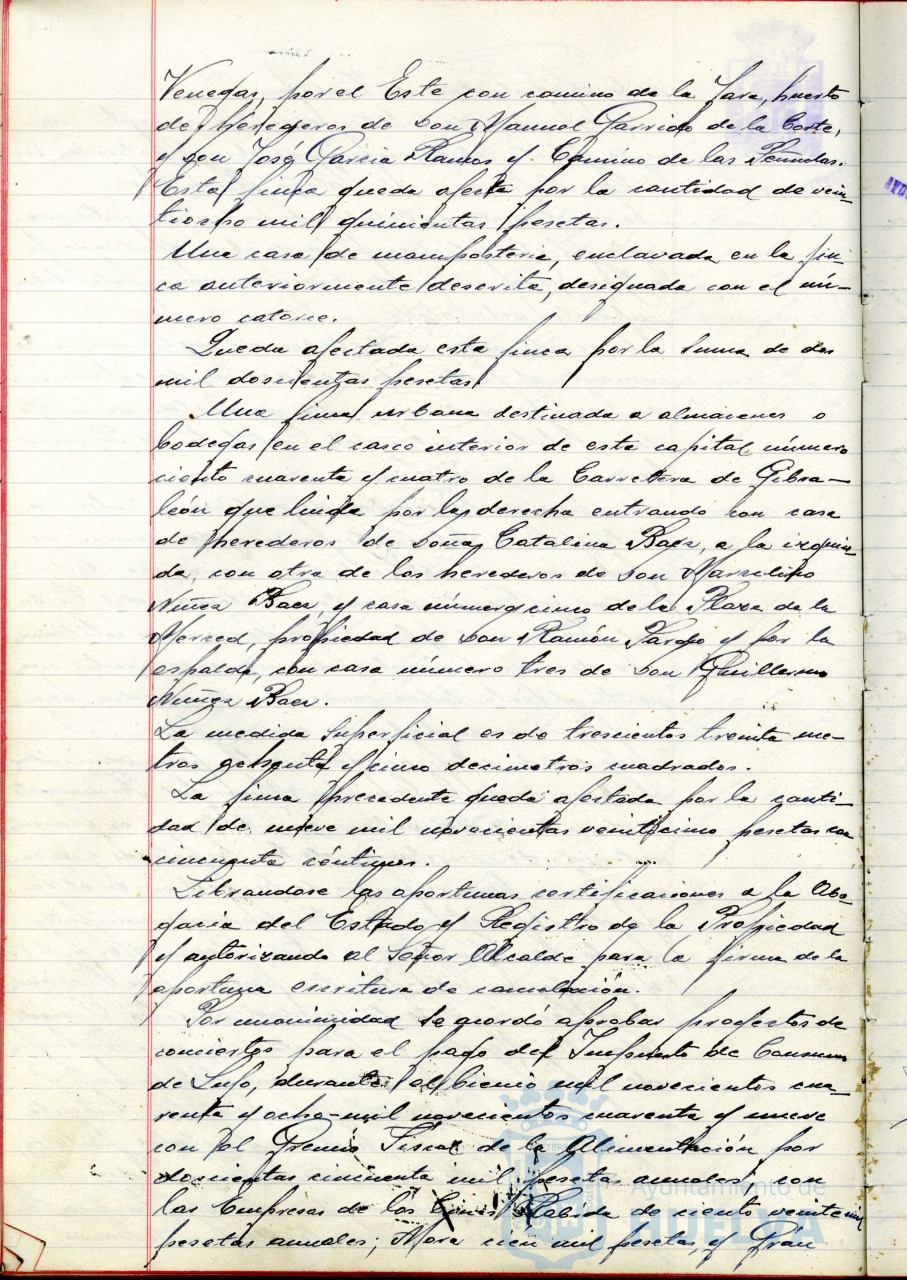 Venegas, por el Este con camino de la Jara, huerto
de herederos de Don Manuel Garrido de la Corte,
y Don José Garcia Ramos y Camino de las Peñuelas.
Esta finca queda afecta por la cantidad de vein-
tiocho mil quinientas pesetas.
Una casa de mamposteria, enclavada en la fin-
ca anteriormente descrita, designada con el nú-
mero catorce.
Queda afectada esta finca por la suma de dos
mil doscientas pesetas.
Una finca urbana destinada a almacenes o
bodegas en el casco interior de esta capital, número
ciento cuarenta y cuatro de la Carretera de Gibra-
león que linda por la derecha entrando con casa
de herederos de Doña Catalina Baez, a la izquier-
da, con otra de los herederos de Don Marcelino
Nuñez Baez, y casa número cinco de la Plaza de la
Merced, propiedad de Don Ramón Pardo y por la
espalda, con casa número tres de Don Guillermo
Nuñez Baez.
La medida superficial es de trescientos treinta me-
tros ochenta y cinco decimetros cuadrados.
La finca precedente queda afectada por la canti-
dad de nueve mil novecientas veinticinco pesetas con
cincuenta céntimos.
Librandose las oportunas certificaciones a la Abo-
gacia del Estado y Registro de la Propiedad
y autorizando al Señor Alcalde para la firma de la
oportuna escritura de cancelación.
Por unanimidad se acordó aprobar proyectos de
conciertos para el pago del Impuesto de Consumos
de Lujo, durante el bienio mil novecientos cua-
renta y ocho-mil novecientos cuarenta y nueve
con el Gremio Fiscal de la Alimentación por
doscientas cincuenta mil pesetas anuales con
las Empresas de los Cines Rabida de ciento veinte mil
pesetas anuales; Mora cien mil pesetas, y Gran
Ayuntamiento de
HUELVA